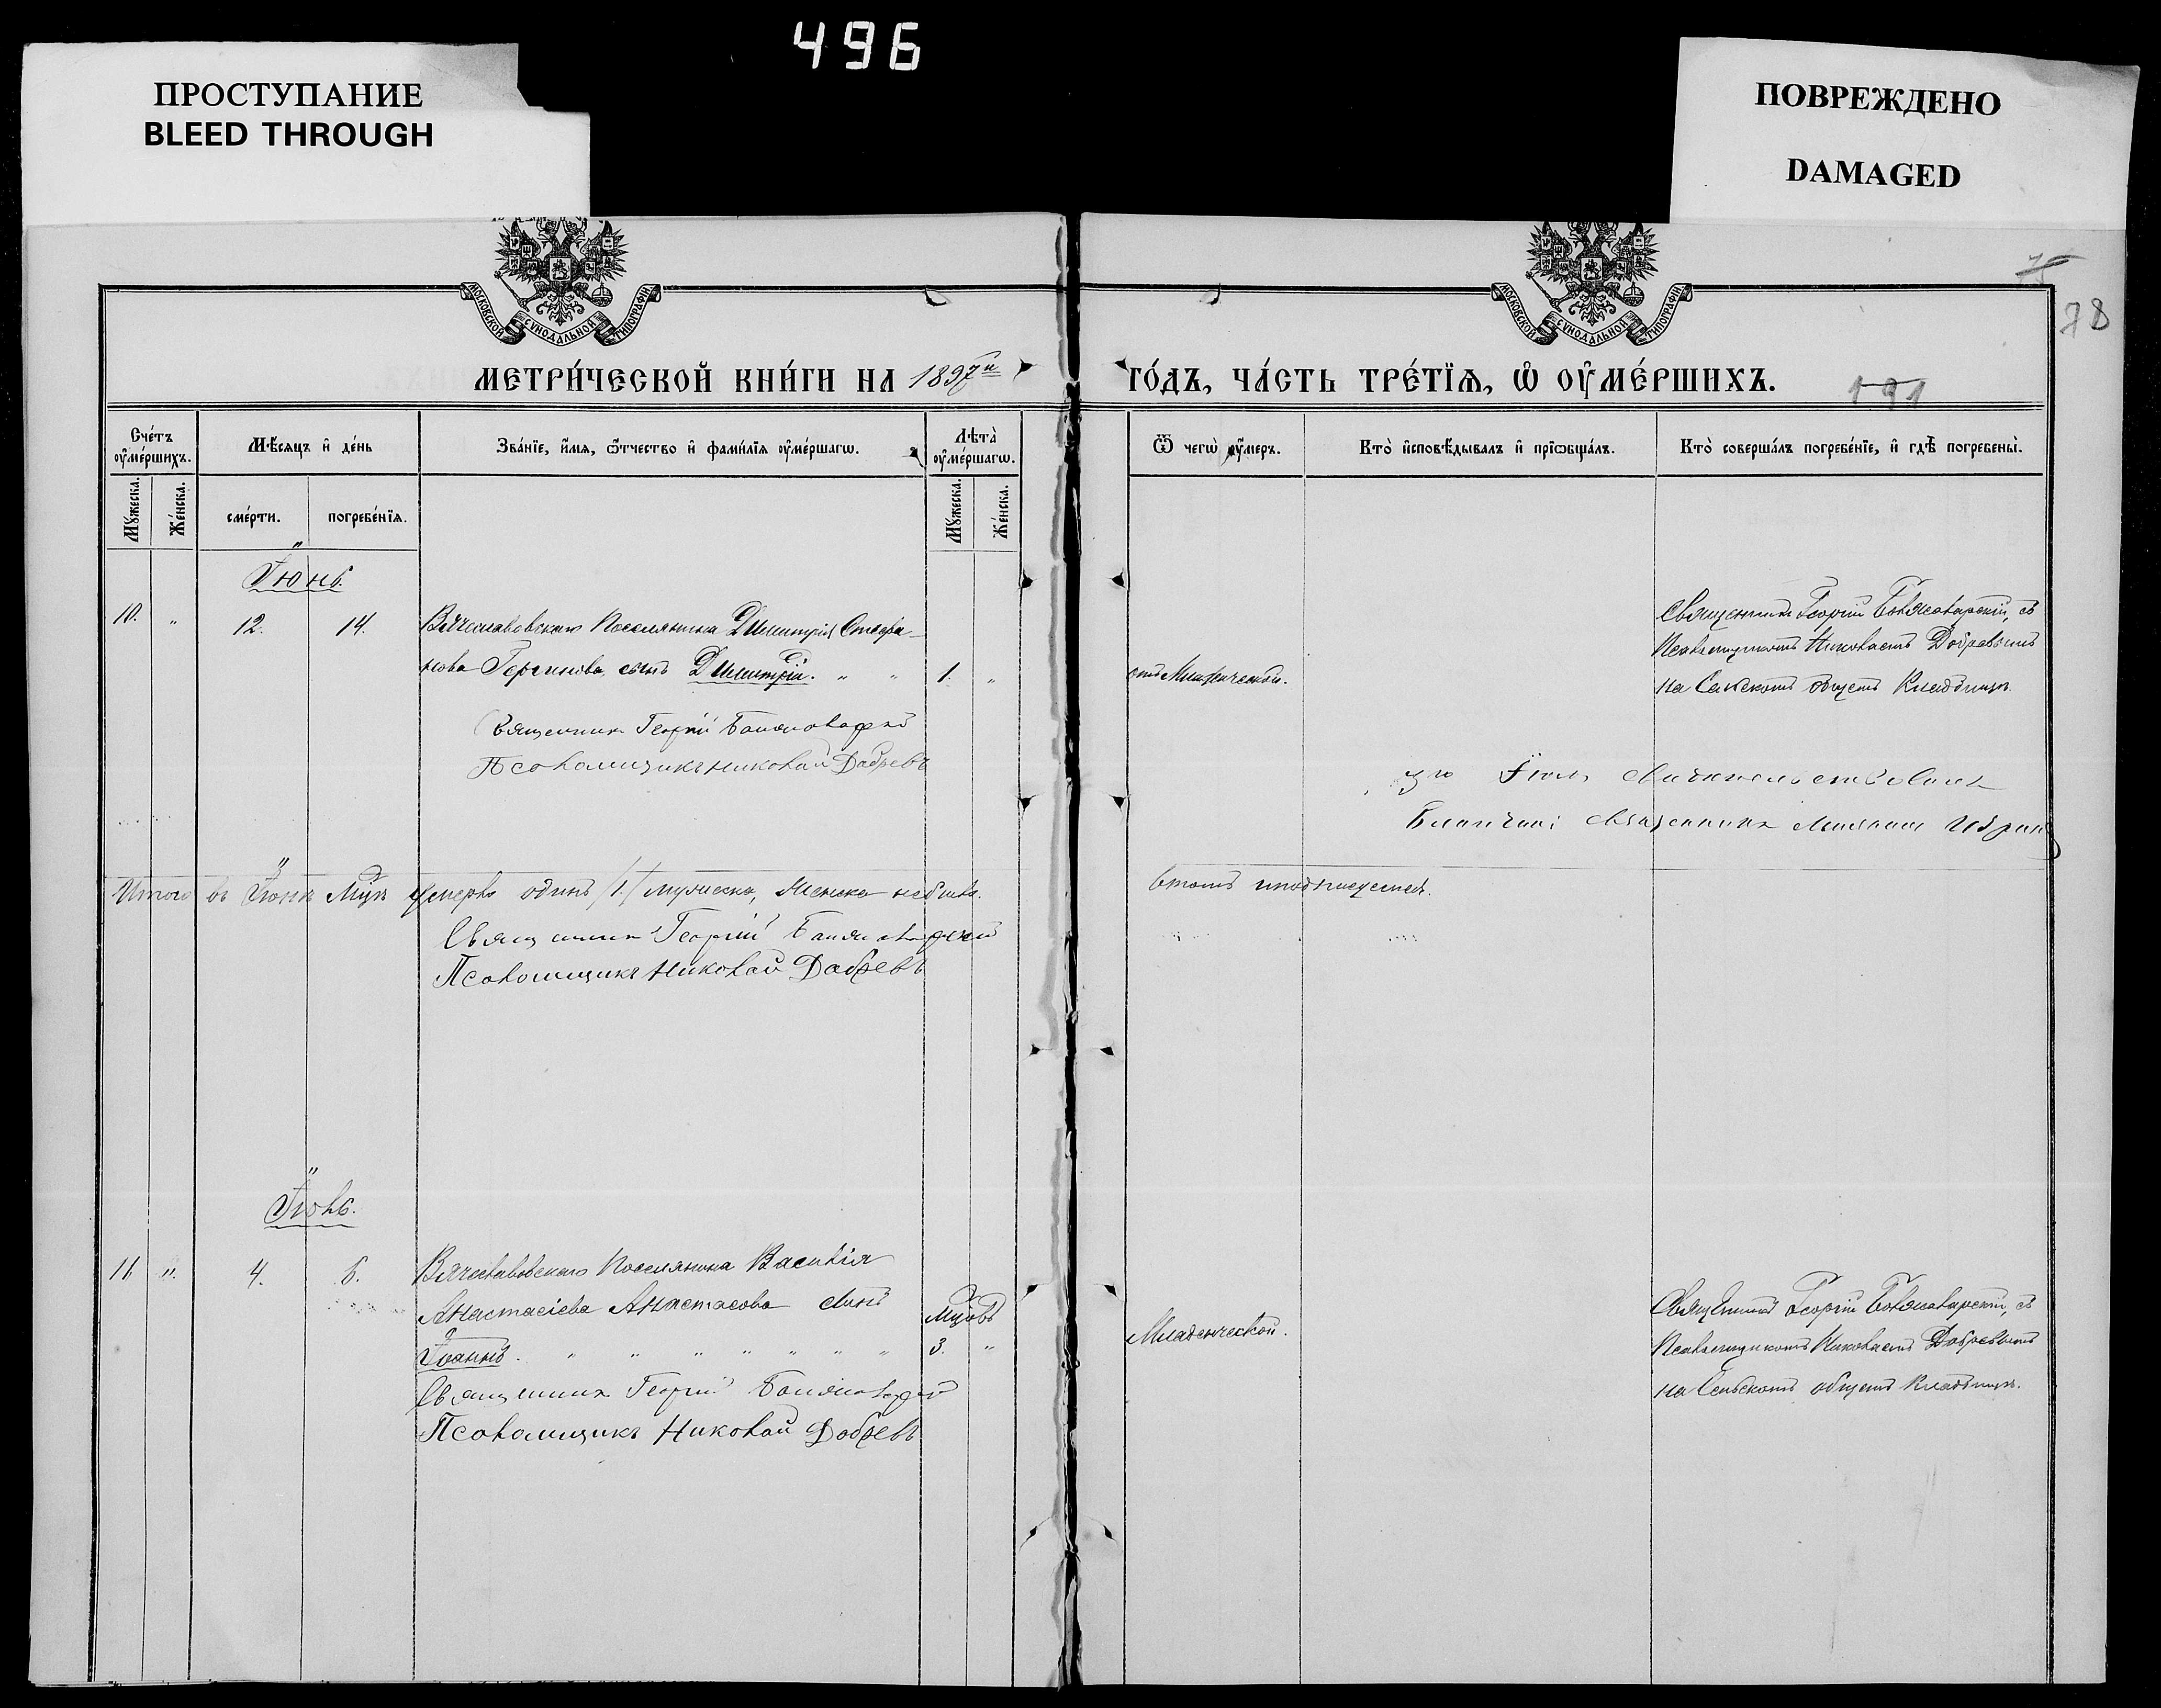 496
ПРОСТУПАНИЕ
BLEED THROUGH
ПОВРЕЖДЕНО
DAMAGED
МОСКОВСКОЙ СѴНОДАЛЬНОЙ ТИПОГРАФІИ
МОСКОВСКОЙ СѴНОДАЛЬНОЙ ТИПОГРАФІИ
75
78
МЕТРИ́ЧЕСКОЙ КНИ́ГИ НА 1897й
ГО́ДЪ, ЧА́СТЬ ТРЕ́ТЇѦ, Ѡ҆ ОУ҆МЕ́РШИХЪ.
191
Сче́тъ оу҆ме́ршихъ.
Мѣ́сѧцъ и҆ де́нь
Зва́нїе, и҆́мѧ, ѻ҆́тчество и҆ фами́лїѧ оу҆ме́ршагѡ.
Лѣта̀ оу҆ме́ршагѡ.
Ѿ чегѡ̀ оу҆́меръ.
Кто̀ и҆сповѣ́дывалъ и҆ прїѡбща́лъ.
Кто̀ соверша́лъ погребе́нїе, и҆ гдѣ̀ погребены̀.
Мꙋ́жеска.
Же́нска.
сме́рти.
погребе́нїѧ.
Мꙋ́жеска.
Же́нска.
Іюнь.
10. " 12. 14. Вячеславовскаго Поселянина Димитрія Стефа-
нова сынъ Димитрій. " " 1. "
Священникъ Георгій
Псаломщикъ Николай Добревъ
отъ Младенческой.
Священникъ Георгій съ
Псаломщикомъ Николаемъ Добревымъ
на Сельскомъ общемъ Кладбищѣ.
Іюль
священникъ
Итого въ Іюнѣ Мцѣ умерло одинъ /1./ мужеска, Женска не было.
Въ томъ и подписуемся.
Священникъ Георгій
Псаломщикъ Николай Добревъ
Іюль.
11. ". 4. 6. Вячеславовскаго Поселянина Василія
Анастасіева Анастасова сынъ
Іоаннъ. " " " " " " "
Мцовъ
3. "
Священникъ Георгій
Псаломщикъ Николай Добревъ
Младенческой.
Священникъ Георгій съ
Псаломщикомъ Николаемъ Добревымъ
на Сельскомъ общемъ Кладбищѣ.